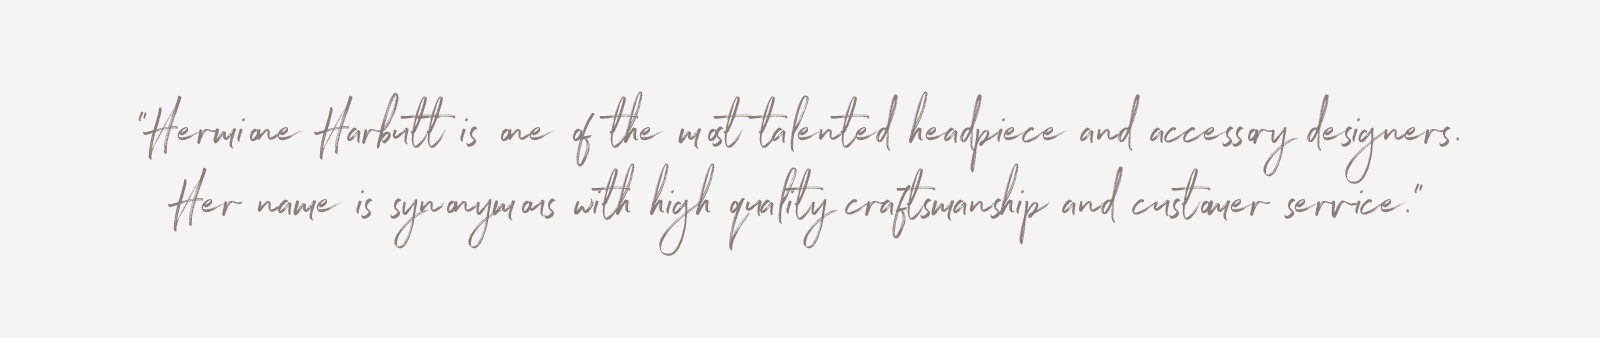 "Hermione Harbutt is one of the most talented headpiece and accessory designers.
Her name is synonymous with high quality craftsmanship and customer service."